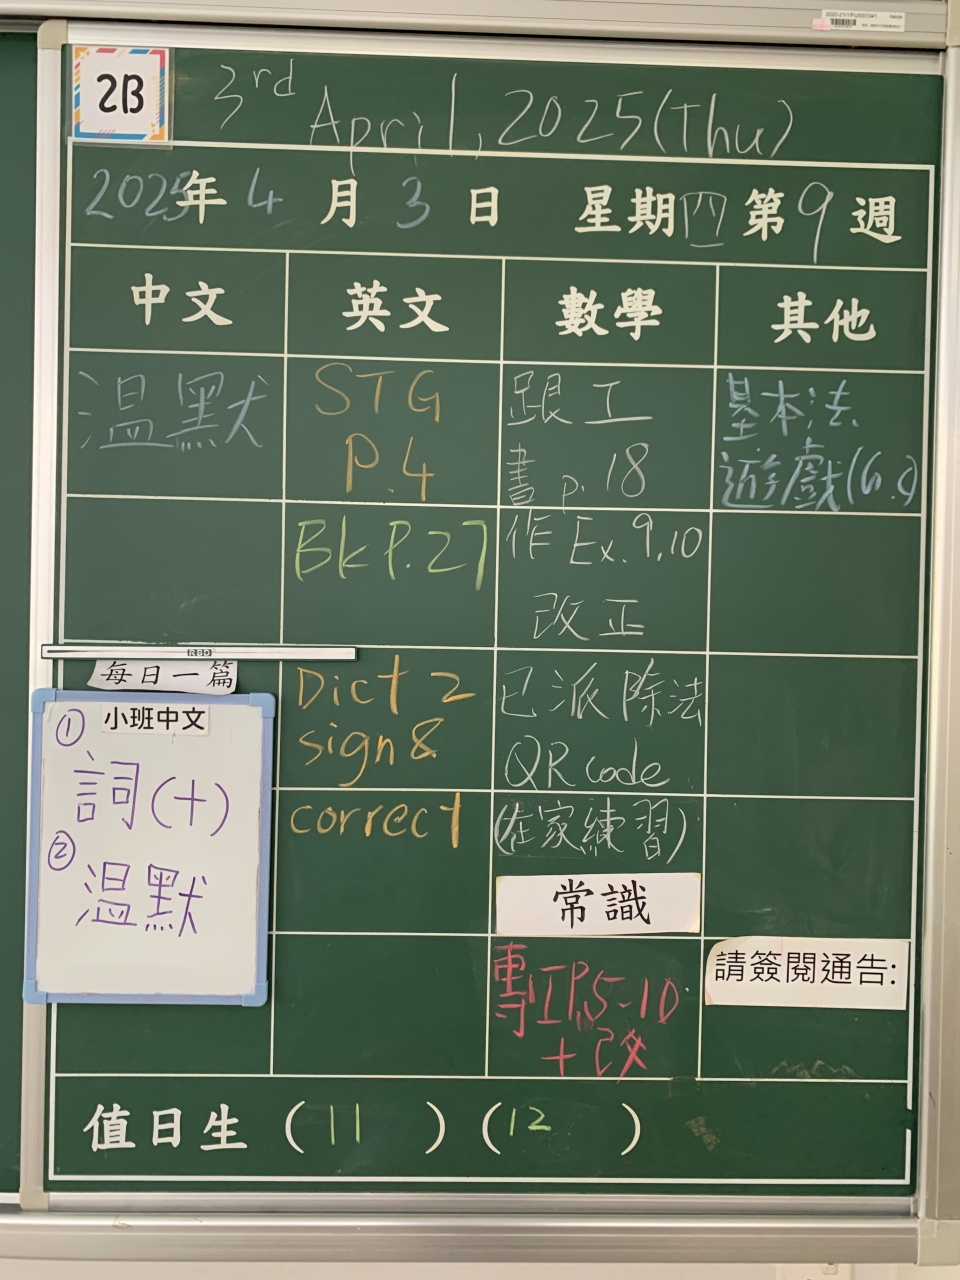 2B
3rd April, 2025(Thu)
2025年4月3日 星期四 第9週
中文 英文 數學 其他
溫默
STG
P.4
BkP.27
Dict 2
sign &
correct
跟工
書p.18
作Ex.9,10
改正
已派除法
QR code
(在家練習)
常識
專工P.5-10
+改
基本法
遊戲(6.9)
請簽閱通告:
RBD
每日一篇
小班中文
① 詞(十)
② 溫默
值日生 (11) (12)